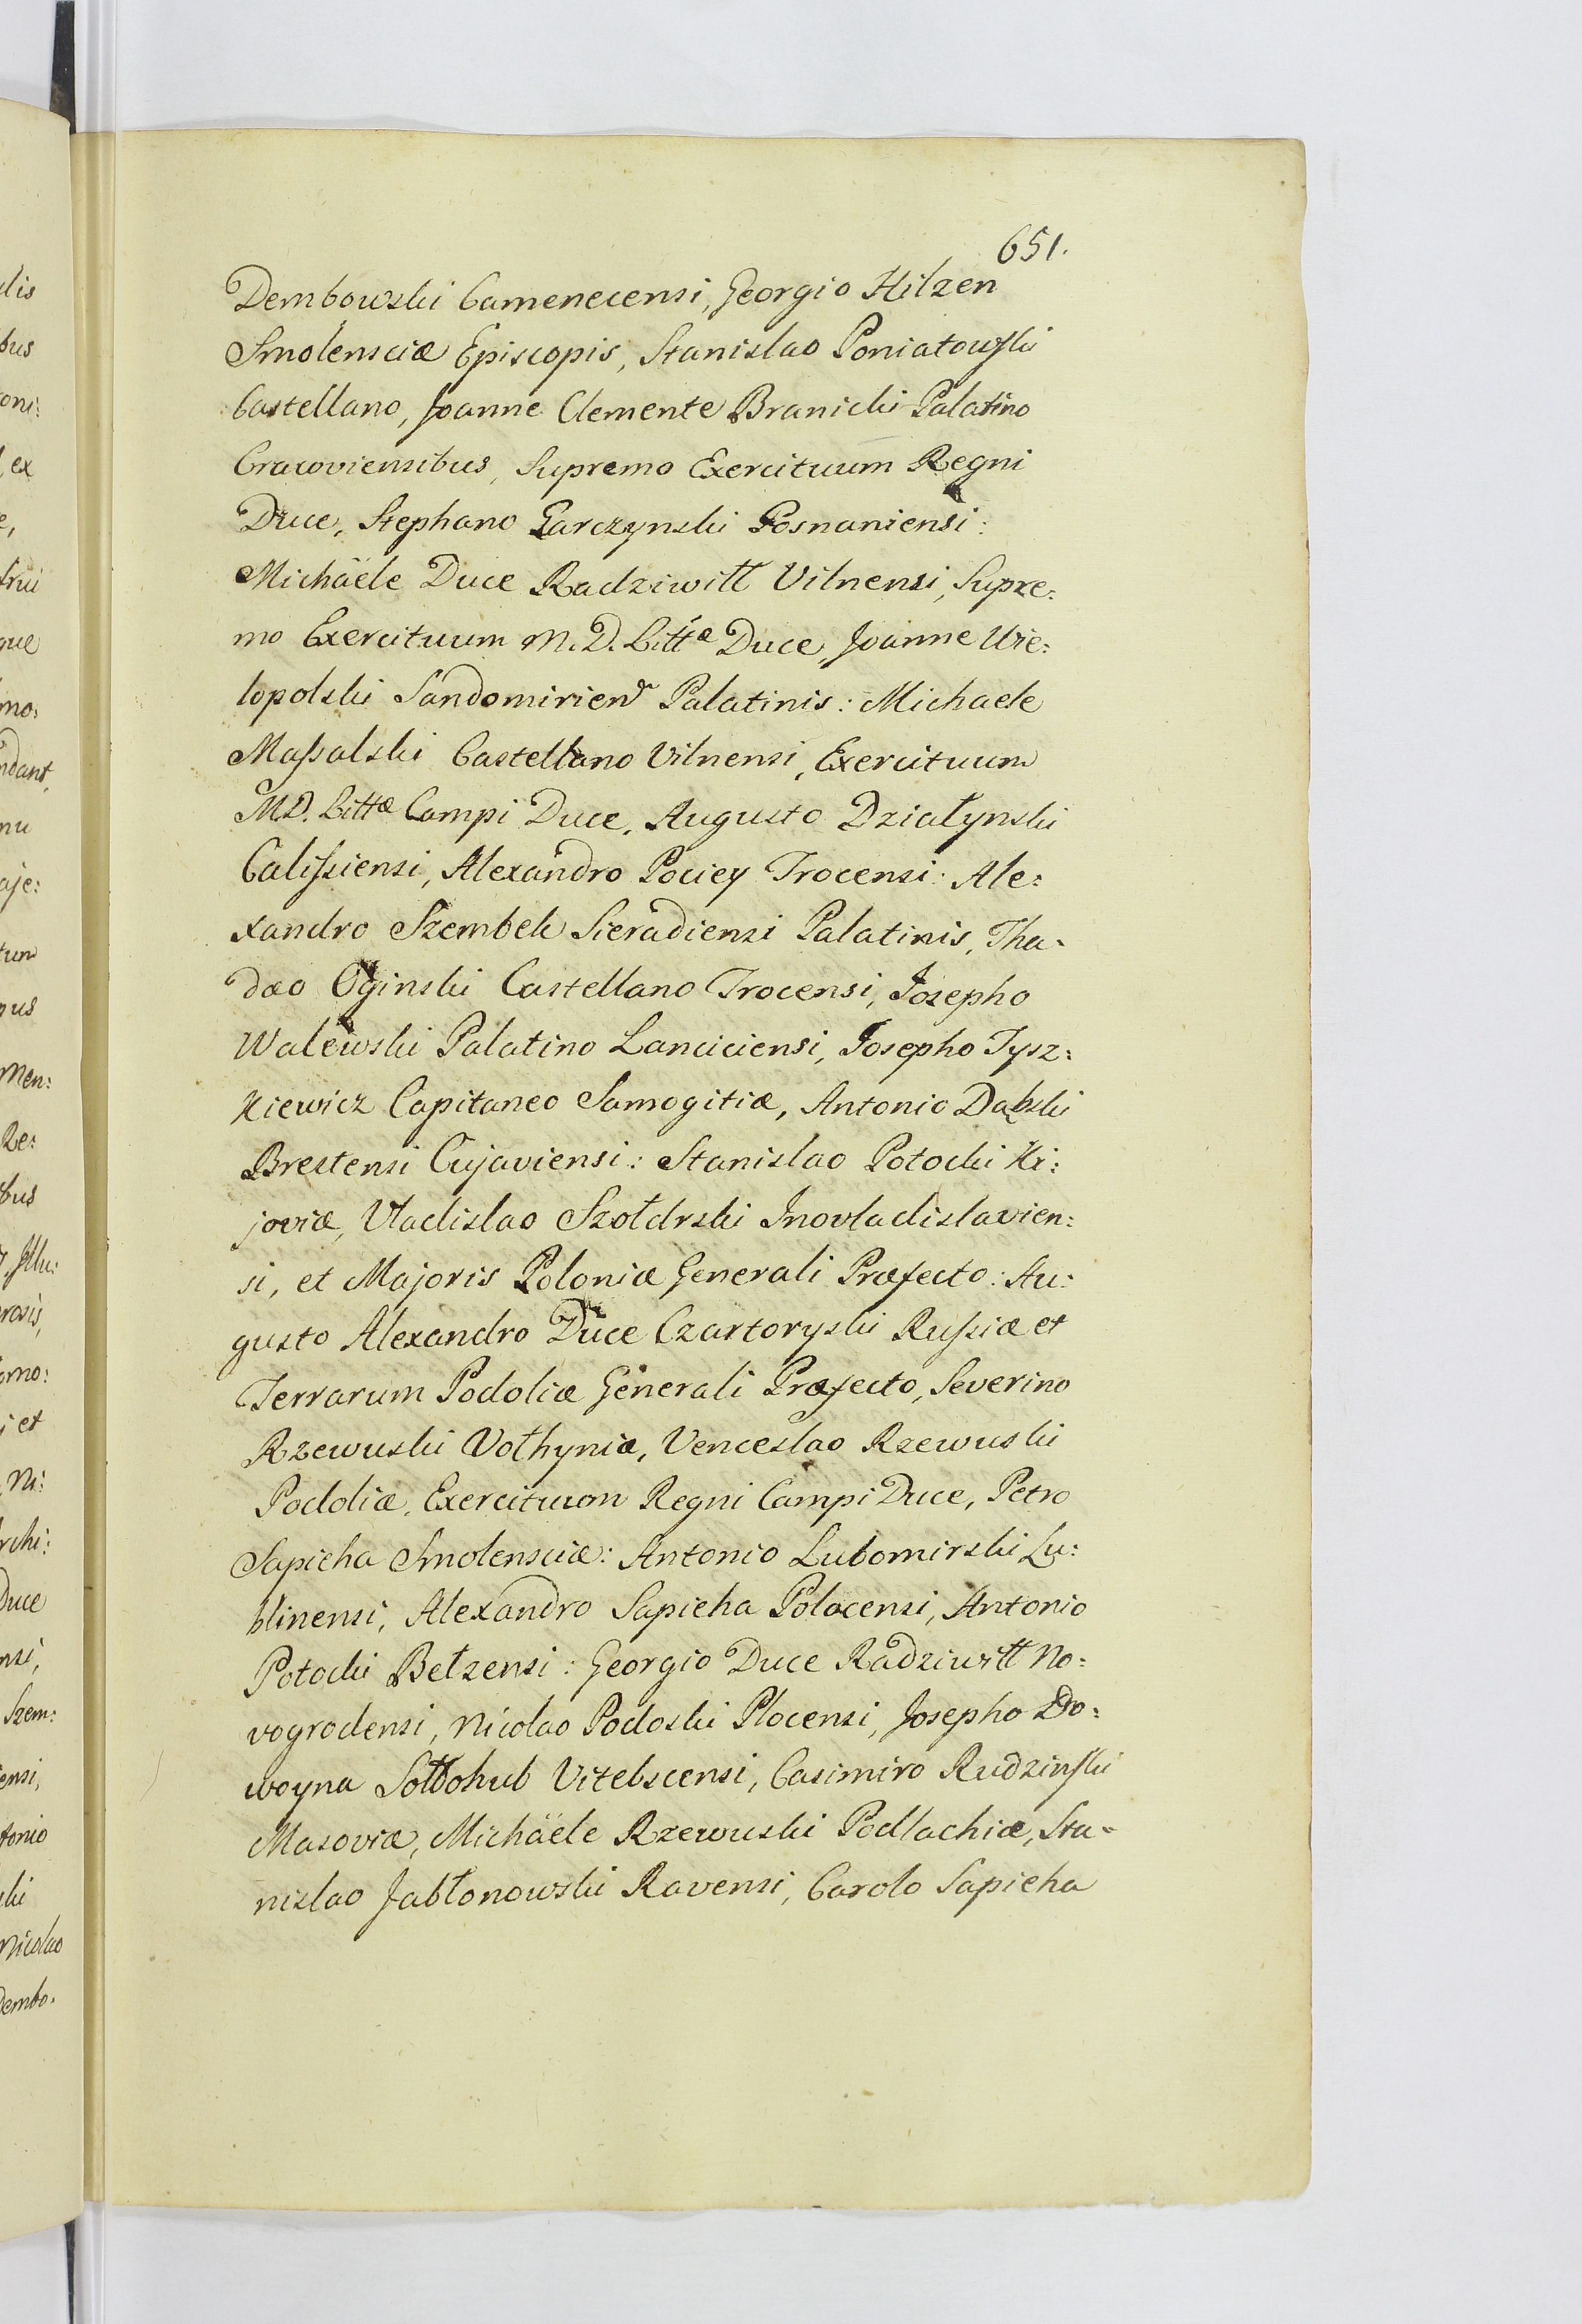 651.
Dembowski Camenecensi, Georgio Hilzen
Smolensciæ Episcopis, Stanislao Poniatowski
Castellano, Joanne Clemente Branicki Palatino
Cracoviensibus, Supremo Exercituum Regni
Duce, Stephano Garczynski Posnaniensi:
Michäele Duce Radziwiłł Vilnensi, Supre:
mo Exercituum M. D. Littæ Duce, Joanne Wie:
lopolski Sandomirien Palatinis: Michaele
Massalski Castellano Vilnensi, Exercituum
M.D. Littæ Campi Duce, Augusto Działynski
Calissiensi, Alexandro Pociey Trocensi: Ale:
xandro Szembek Sieradiensi Palatinis, Tha-
dæo Oginski Castellano Trocensi, Josepho
Walewski Palatino Lanciciensi, Josepho Tysz:
kiewicz Capitaneo Samogitiæ, Antonio Dąbski
Brestensi Cujaviensi: Stanislao Potocki Ki:
joviæ, Vladislao Szołdrski Inovladislavien:
si, et Majoris Poloniæ Generali Præfecto: Au:
gusto Alexandro Duce Czartoryski Russiæ et
Terrarum Podoliæ Generali Præfecto, Severino
Rzewuski Volhyniæ, Venceslao Rzewuski
Podoliæ, Exercituum Regni Campi Duce, Petro
Sapieha Smolensciæ: Antonio Lubomirski Lu:
blinensi, Alexandro Sapieha Polocensi, Antonio
Potocki Belzensi: Georgio Duce Radziwiłł No:
vogrodensi, Nicolao Podoski Plocensi, Josepho Do:
woyna Sołłohub Vitebscensi, Casimiro Rudzinski
Masoviæ, Michäele Rzewuski Podlachiæ, Sta-
nislao Jabłonowski Ravensi, Carolo Sapieha